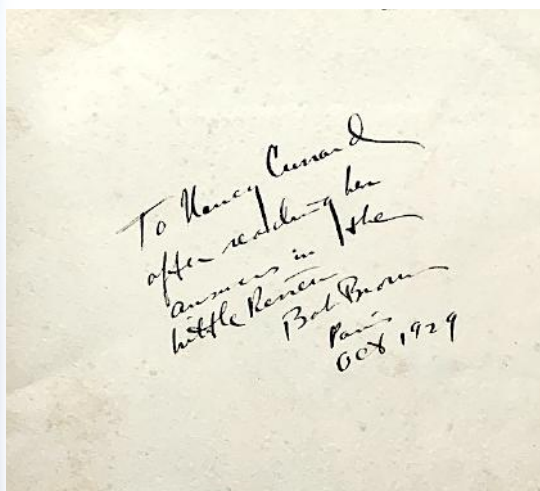 To Nancy Cunard
after reading her
answers in the
Little Review
Bob Brown
Paris
Oct 1929